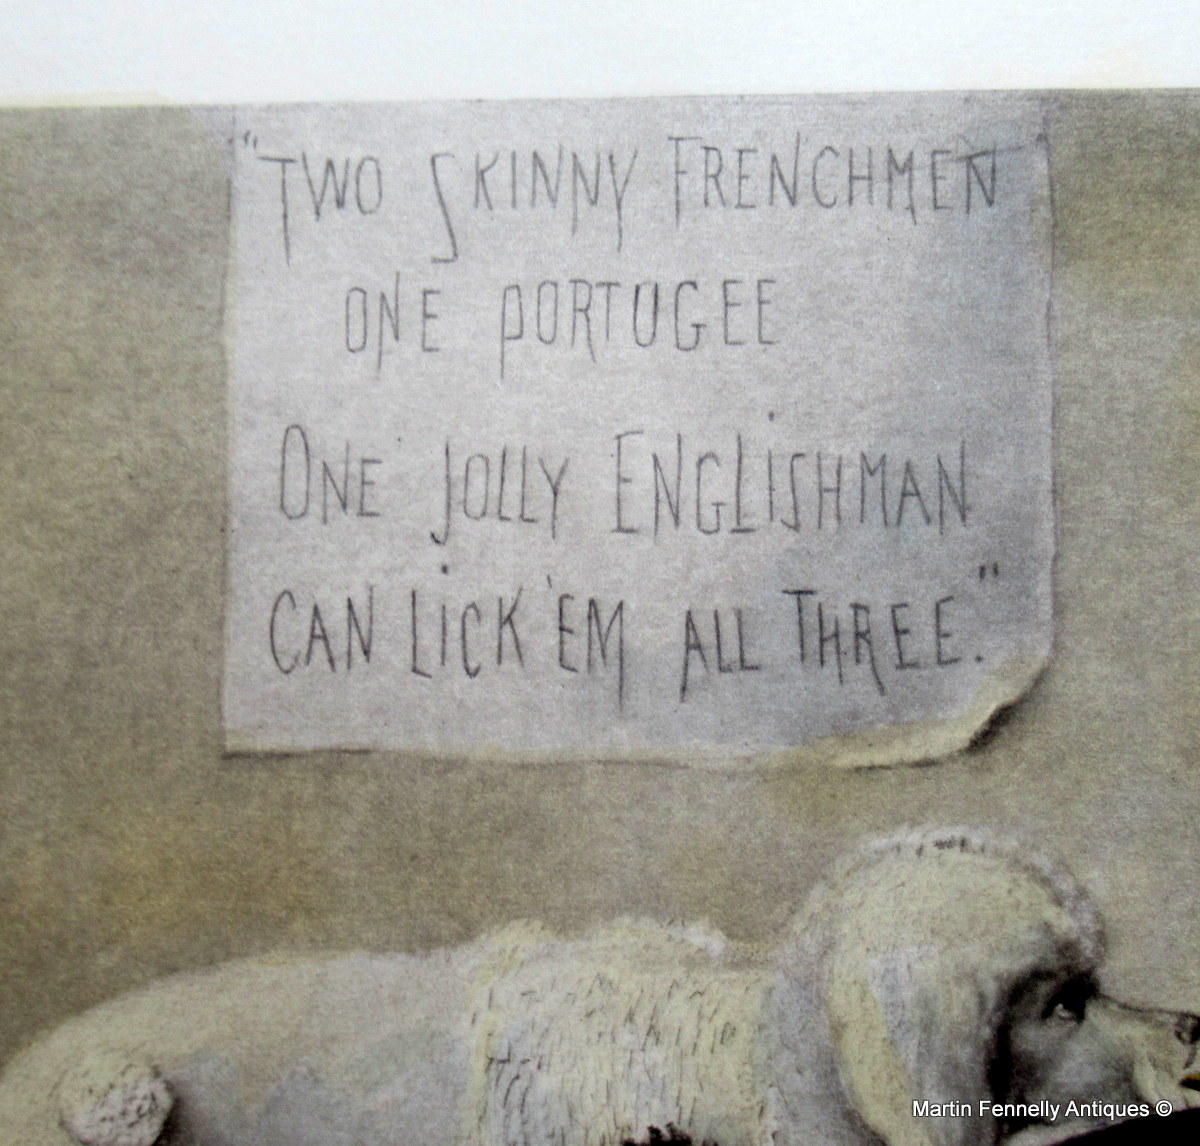 "TWO SKINNY FRENCHMEN
ONE PORTUGEE
ONE JOLLY ENGLISHMAN
CAN LICK 'EM ALL THREE."
Martin Fennelly Antiques ©